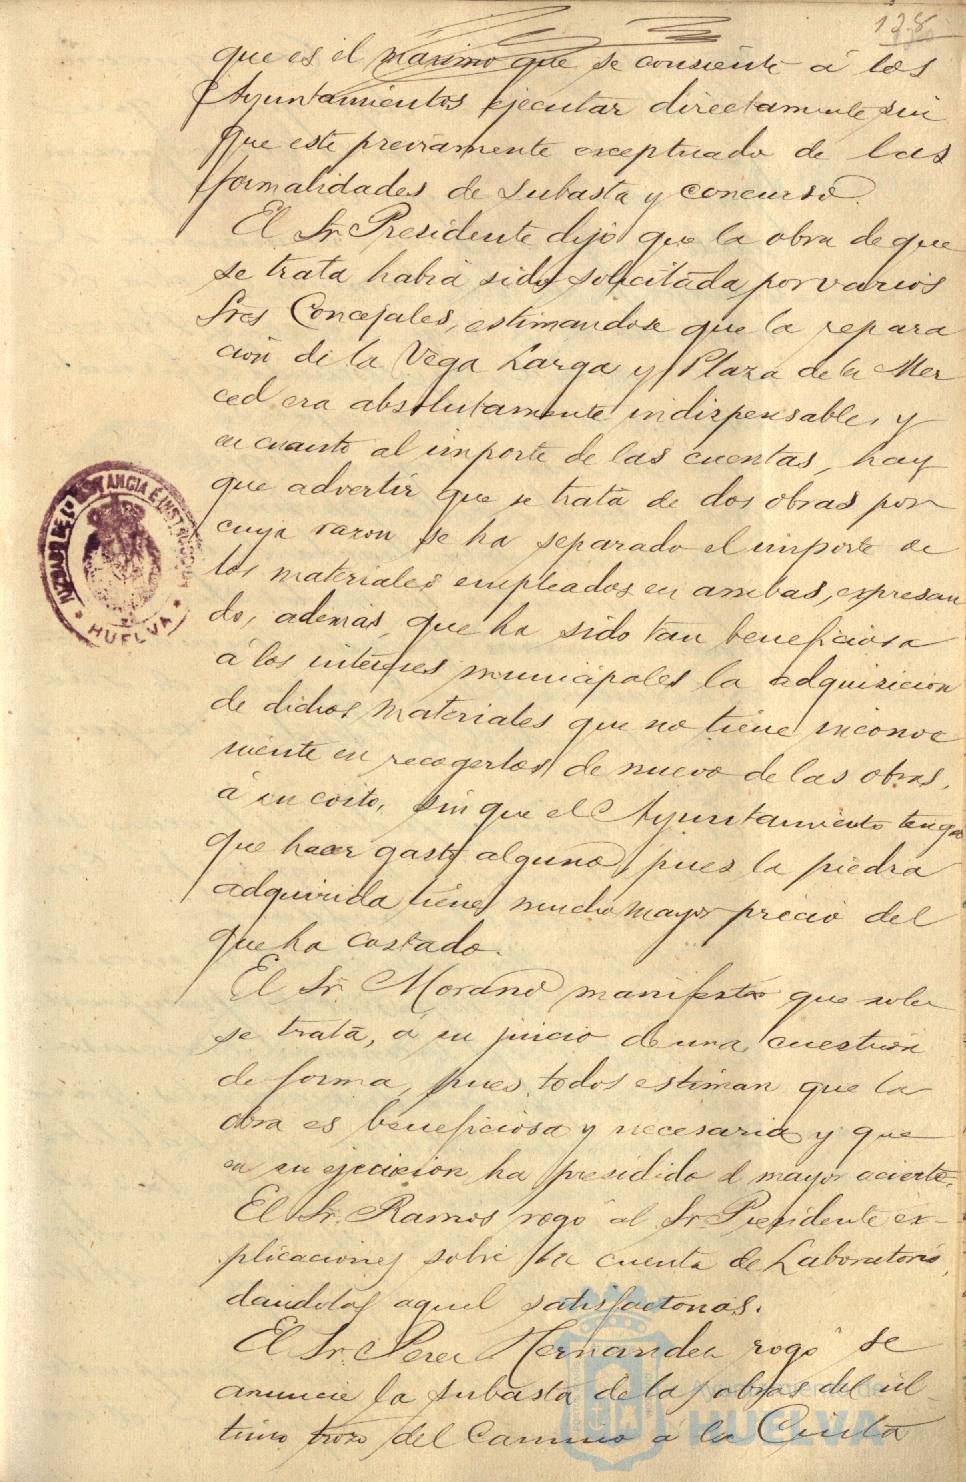 128
que es el maximo que se consiente á los
Ayuntamientos ejecutar directamente sin
que esté previamente exceptuado de las
formalidades de subasta y concurso.
El Sr. Presidente dijo que la obra de que
se trata habia sido solicitada por varios
Sres Concejales, estimandose que la repara
ción de la Vega Larga y Plaza de la Mer
ced era absolutamente indispensable, y
en cuanto al importe de las cuentas, hay
que advertir que se trata de dos obras por
cuya razon se ha separado el importe de
los materiales empleados en ambas, expresan
do, además, que ha sido tan beneficiosa
á los intereses municipales la adquisicion
de dichos materiales que no tiene inconve
niente en recogerlos de nuevo de las obras,
á su costo, sin que el Ayuntamiento tenga
que hacer gasto alguno, pues la piedra
adquirida tiene mucho mayor precio del
que ha costado.
El Sr. Morano manifestó que solo
se trata, á su juicio de una cuestion
de forma, pues todos estiman que la
obra es beneficiosa y necesaria y que
en su ejecicion ha presidido el mayor acierto.
El Sr. Ramos rogó al Sr. Presidente ex-
plicaciones sobre la cuenta de Laboratorio,
dandolas aquel satisfactorias.
El Sr. Perez Hernandez rogó se
anuncie la subasta de las obras del úl-
timo trozo del Camino á la Cinta
JUZGADO DE 1ª INSTANCIA E INSTRUCCION
* HUELVA *
Ayuntamiento de
HUELVA